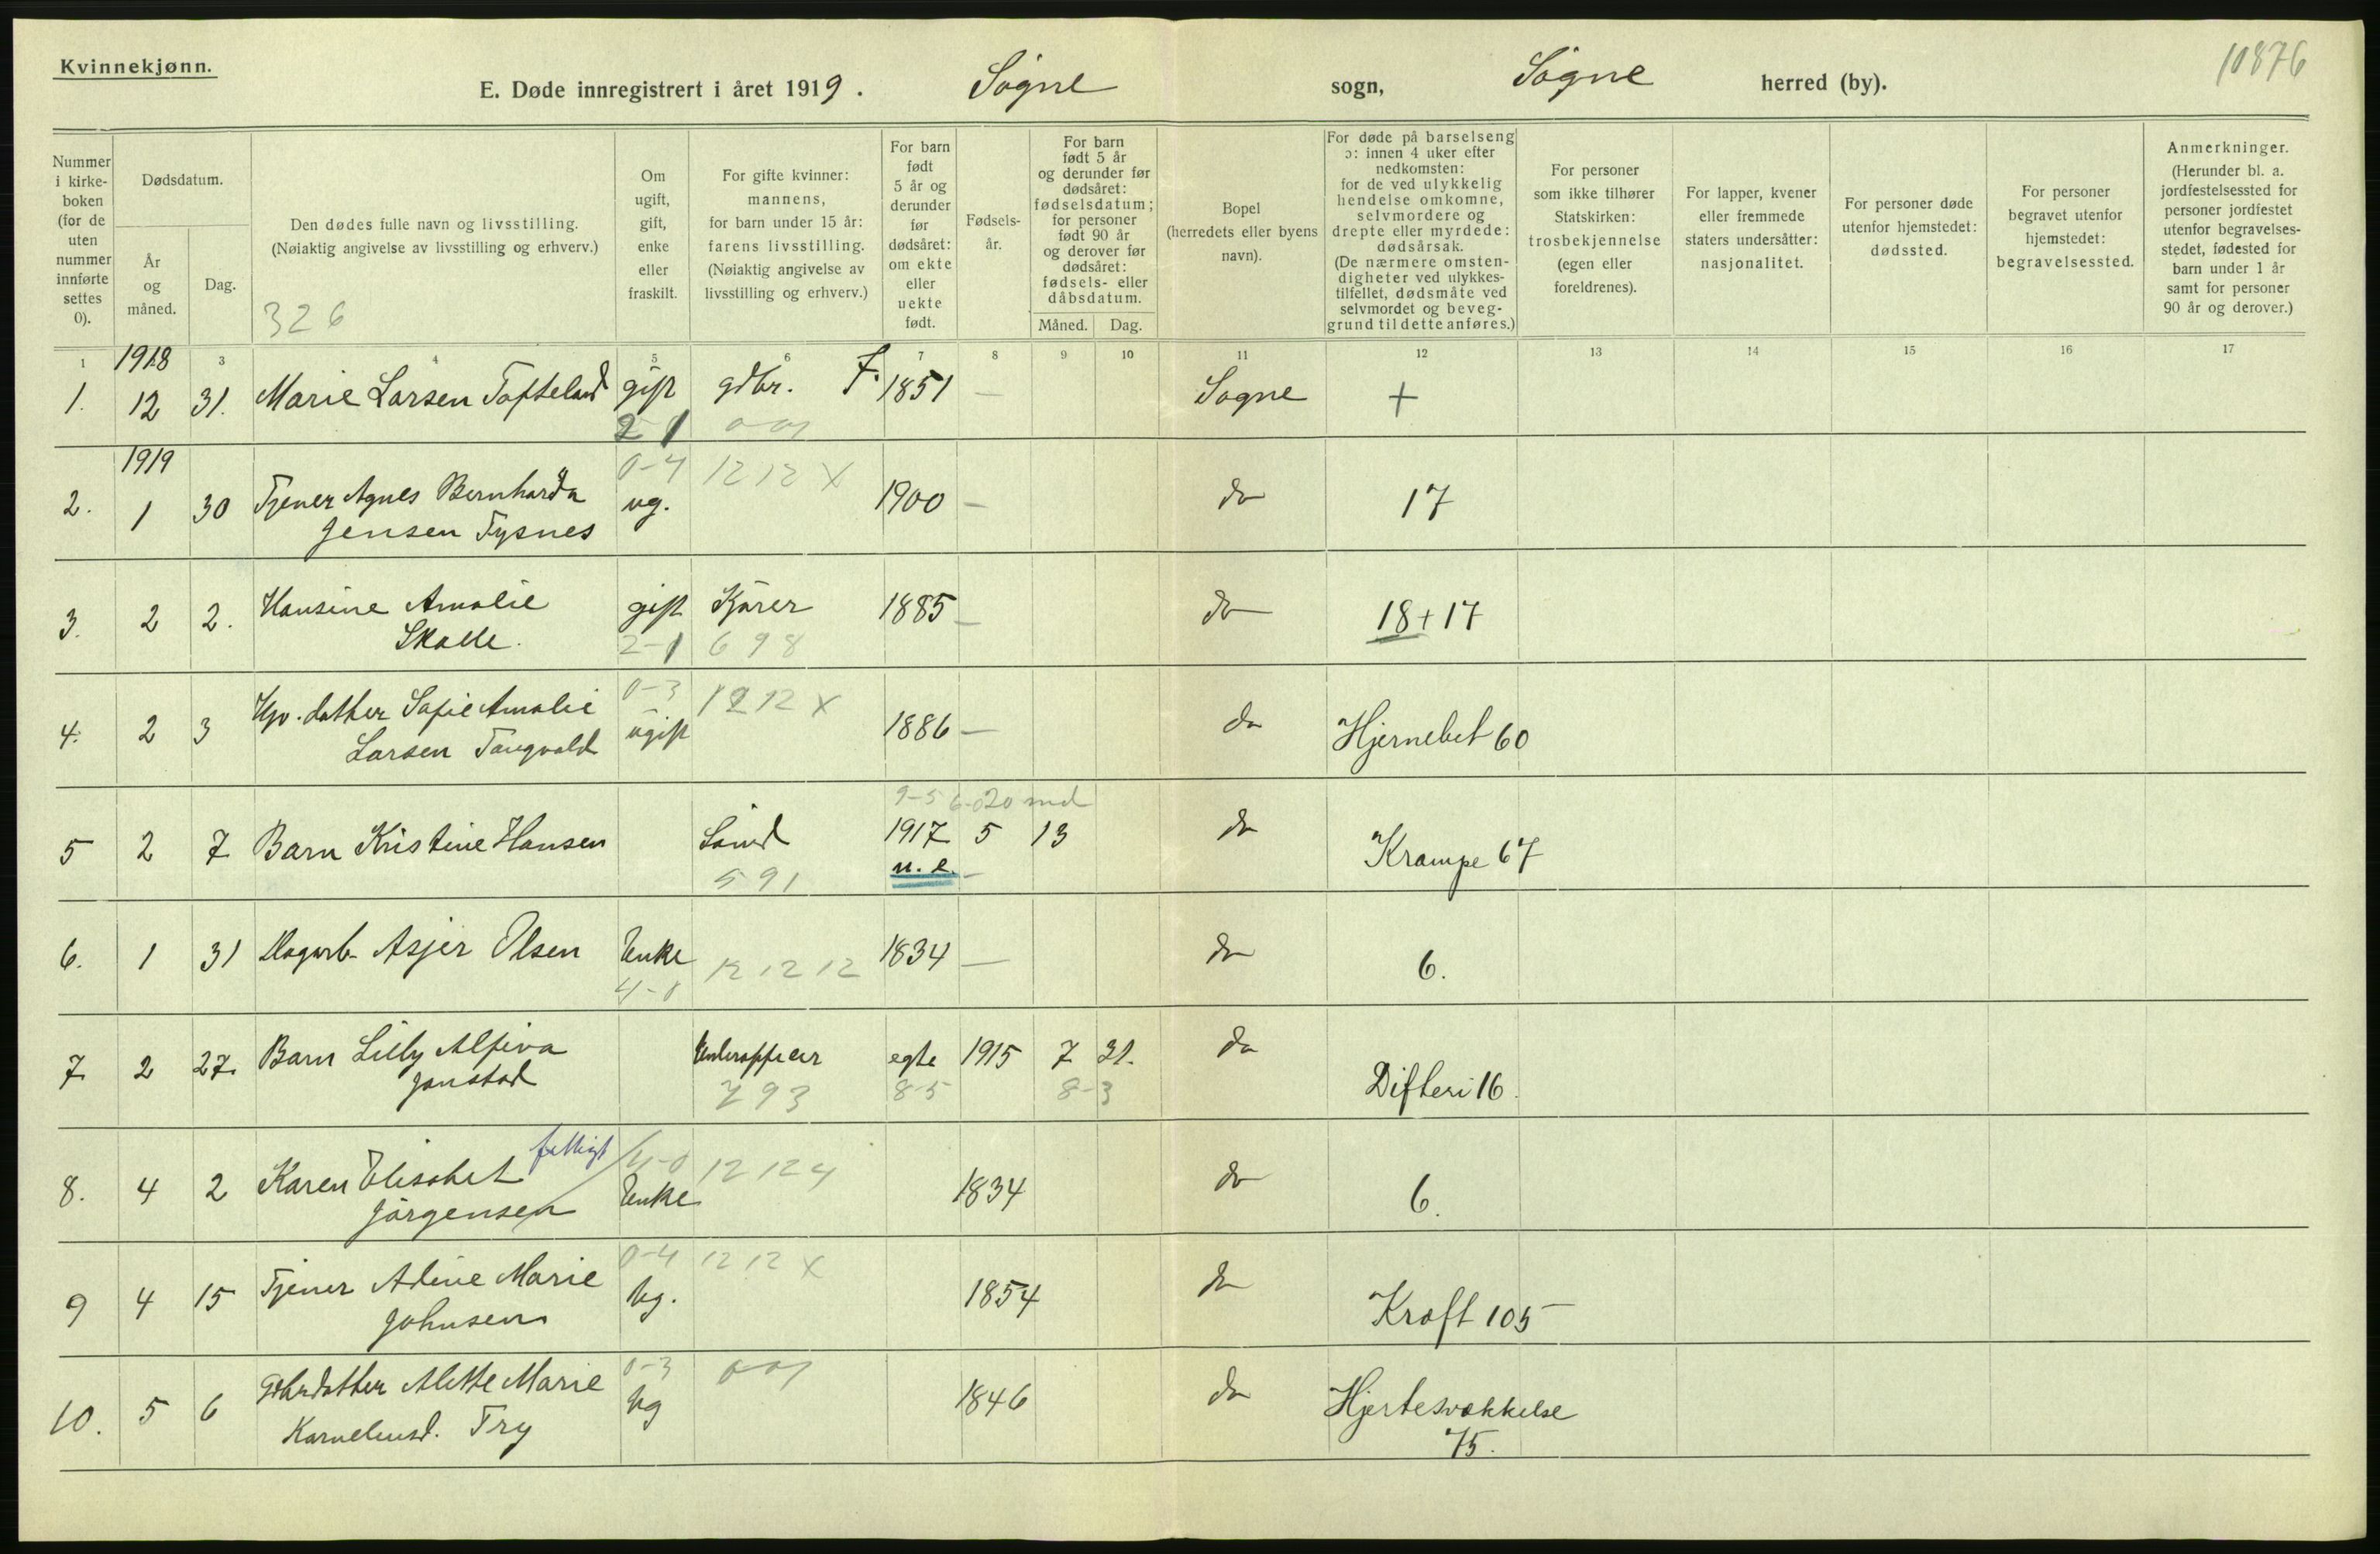 Kvinnekjønn.
10876
E. Døde innregistrert i året 1919. Søgne sogn, Søgne herred (by).
Nummer i kirkeboken (for de uten nummer innførte settes 0).
Dødsdatum.
År og måned.
Dag.
Den dødes fulle navn og livsstilling.
(Nøiaktig angivelse av livsstilling og erhverv.)
326
Om ugift, gift, enke eller fraskilt.
For gifte kvinner: mannens, for barn under 15 år: farens livsstilling. (Nøiaktig angivelse av livsstilling og erhverv.)
For barn født 5 år og derunder før dødsåret: om ekte eller uekte født.
Fødselsår.
For barn født 5 år og derunder før dødsåret: fødselsdatum; for personer født 90 år og derover før dødsåret: fødsels- eller dåbsdatum.
Måned. Dag.
Bopel (herredets eller byens navn).
For døde på barselseng ɔ: innen 4 uker efter nedkomsten: for de ved ulykkelig hendelse omkomne, selvmordere og drepte eller myrdede: dødsårsak. (De nærmere omstendigheter ved ulykkestilfellet, dødsmåte ved selvmordet og beveggrund til dette anføres.)
For personer som ikke tilhører Statskirken: trosbekjennelse (egen eller foreldrenes).
For lapper, kvener eller fremmede staters undersåtter: nasjonalitet.
For personer døde utenfor hjemstedet: dødssted.
For personer begravet utenfor hjemstedet: begravelsessted.
Anmerkninger. (Herunder bl. a. jordfestelsessted for personer jordfestet utenfor begravelsesstedet, fødested for barn under 1 år samt for personer 90 år og derover.)
1 3 4 5 6 7 8 9 10 11 12 13 14 15 16 17
1918
1. 12 31. Marie Larsen Tofteland gift gdbr. F. 1851 — Søgne +
2-1
1919
0-4 12 12 X
2. 1 30 Tjener Agnes Bernharda ug. 1900 — do 17
Jensen Tysnes
3. 2 2. Hansine Amalie gift Kjører 1885 — do 18 + 17
Skolle. 2-1 698
0-3 12 12 X
4. 2 3 datter Sofie Amalie ugift 1886 — do Hjernebet 60
Larsen Tangvald
9-5 6-020 md
5 2 7 Barn Kristine Hansen 1917 5 13 do Krampe 67
591 u. e. —
6. 1 31 Asjer Olsen Enke 12 12 12 1834 — do 6.
7. 2 27. Barn Lilly Alfiva egte 1915 7 21. do Difteri 16.
Jonstad 793 8-5 8-3
fattigt 4-0 12 12 4
8. 4 2 Karen Elisabet Enke 1834 do 6.
Jørgensen
0-4 12 12 X
9 4 15 Tjener Adine Marie Ug. 1854 do Kræft 105
Johnsen
0-3
10. 5 6 Gdbrdatter Alette Marie Ug 1846 do Hjertesvækkelse
Kornelusd. Try 75.